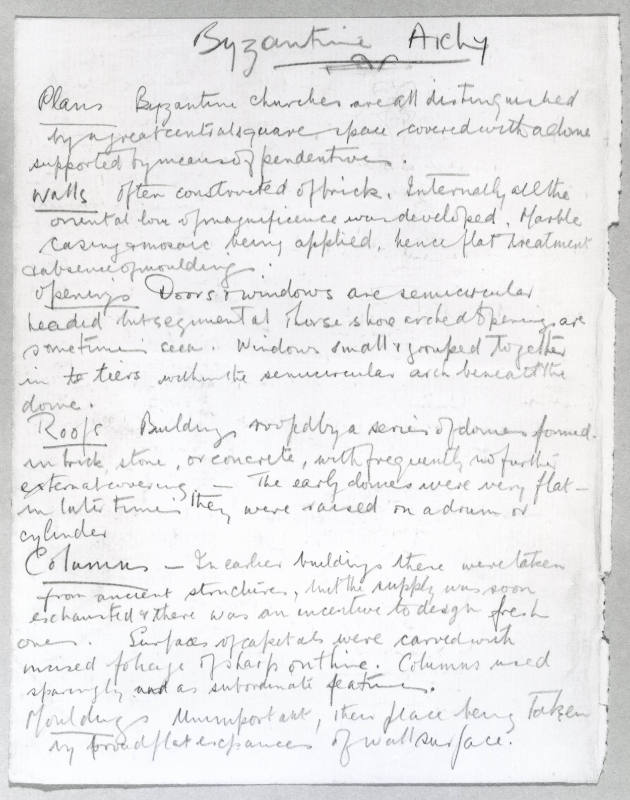 Byzantine Archy
Plans Byzantine churches are all distinguished
by a great central square space covered with a dome
supported by means of pendentives.
Walls often constructed of brick. Internally all the
oriental love of magnificence was developed. Marble
casing & mosaic being applied, hence flat treatment
& absence of moulding.
Openings Doors & windows are semicircular
headed but segmental & horse shoe arched openings are
sometimes seen. Windows small & grouped together
in teers within the semicircular arch beneath the
dome.
Roofs Buildings roofed by a series of domes formed
in brick, stone, or concrete, with frequently no further
external covering — The early domes were very flat —
in later times they were raised on a drum or
cylinder
Columns — In earlier buildings these were taken
from ancient structures, but the supply was soon
exchausted & there was an incentive to design fresh
ones. Surfaces of capitals were carved with
incised foliage of sharp outline. Columns used
sparingly and as subordinate features.
Mouldings Unimportant, their place being taken
by broad flat expances of wall surface.